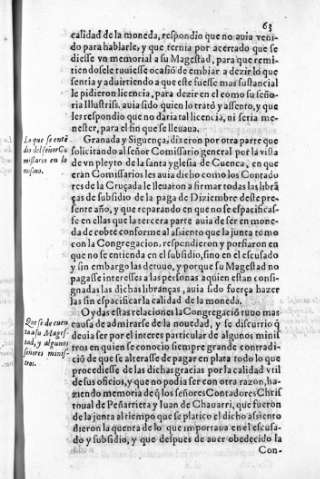 63
calidad de la moneda, respondio que no auia veni-
do para hablarle, y que ternia por acertado que se
diesse vn memorial a su Magestad, para que remi-
tiendosele tuuiesse ocasió de embiar a dezir lo que
sentia y aduirtiendo a que este fuesse mas sustancial
le pidieron licencia, para dezir en el como su seño-
ria Illustriss. auia sido quien lo trató y assento, y que
les respondio que no daria tal licencia, ni seria me-
nester, para el fin que se lleuaua.
Lo que se enté
dio del señor Co
missario en lo
mismo.
Granada y Siguença, dixeron por otra parte que
solicitando al señor Comissario general por la vista
de vn pleyto de la santa yglesia de Cuenca, en que
eran Comissarios les auia dicho como los Contado
res de la Cruçada le lleuaron a firmar todas las librã
ças de subsidio de la paga de Diziembre deste pre-
sente año, y que reparando en que no se especificas-
se en ellas que la tercera parte auia de ser en mone-
da de cobre conforme al asiento que la junta tomo
con la Congregacion, respondieron y porfiaron en
que no se entienda en el subsidio, sino en el escusado
y sin embargo las detuuo, y porque su Magestad no
pagasse interesses a las personas aquien estan consi-
gnadas las dichas libranças, auia sido fuerça hazer
las sin especificarla calidad de la moneda.
Que se dé cuen
ta a su Mages-
tad, y algunos
señores minis-
tros.
Oydas estas relaciones la Congregació tuuo mas
causa de admirarse de la nouedad, y se discurrio q̃
deuia ser por el interes particular de algunos minis
tros en quien se conocio siempre grande contradi-
ció de que se alterasse de pagar en plata todo lo que
procediesse de las dichas gracias por la calidad vtil
de sus oficios, y que no podia ser con otra razon, ha-
ziendo memoria de q̃ los señores Contadores Chris
toual de Peñarrieta y Iuan de Chauarri, que fueron
de la junta al tiempo que se platico el dicho asiento
dieron la quenta de lo que importaua en el escusa-
do y subsidio, y que despues de auer obedecido la
Con-